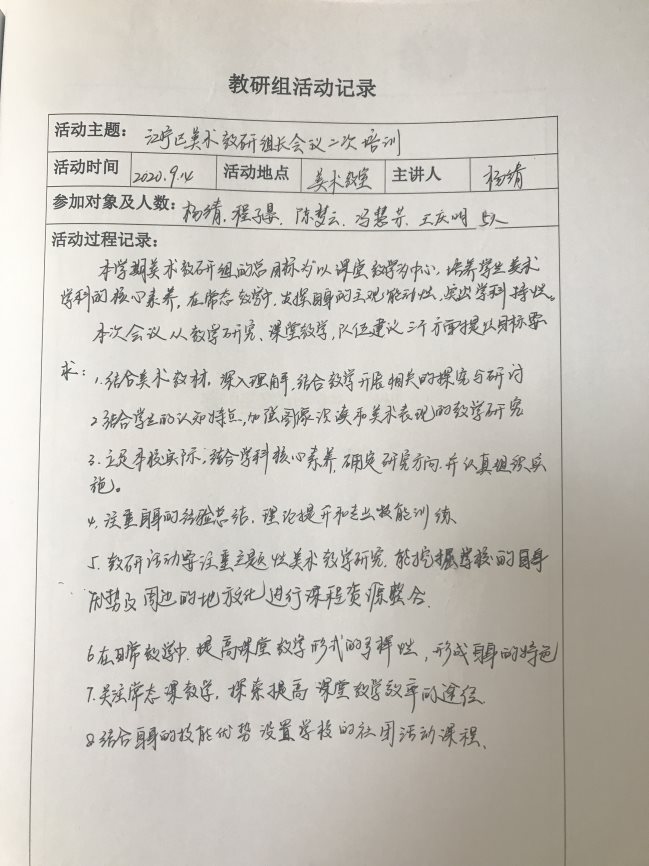 教研组活动记录
活动主题：江宁区美术教研组长会议二次培训
活动时间 2020.9.14 活动地点 美术教室 主讲人 杨靖
参加对象及人数：杨靖、程子晏、陈梦云、冯慧芳、王庆明 5人
活动过程记录：
本学期美术教研组的总目标为以课堂教学为中心，培养学生美术
学科的核心素养，在常态教学中，发挥自身的主观能动性，突出学科特性。
本次会议从教学研究、课堂教学，队伍建议三个方面提以目标要
求：1.结合美术教材，深入理解，结合教学开展相关的探究与研讨
2.结合学生的认知特点，加强图像识读和美术表现的教学研究
3.立足本校实际，结合学科核心素养，确定研究方向，并认真组织实
施。
4.注重自身的经验总结，理论提升和专业技能训练
5.教研活动要注重主题性美术教学研究，能挖掘学校的自身
优势及周边的地方文化进行课程资源整合.
6.在日常教学中，提高课堂教学形式的多样性，形成自身的特色
7.关注常态课教学，探索提高课堂教学效率的途径
8.结合自身的技能优势设置学校的社团活动课程、